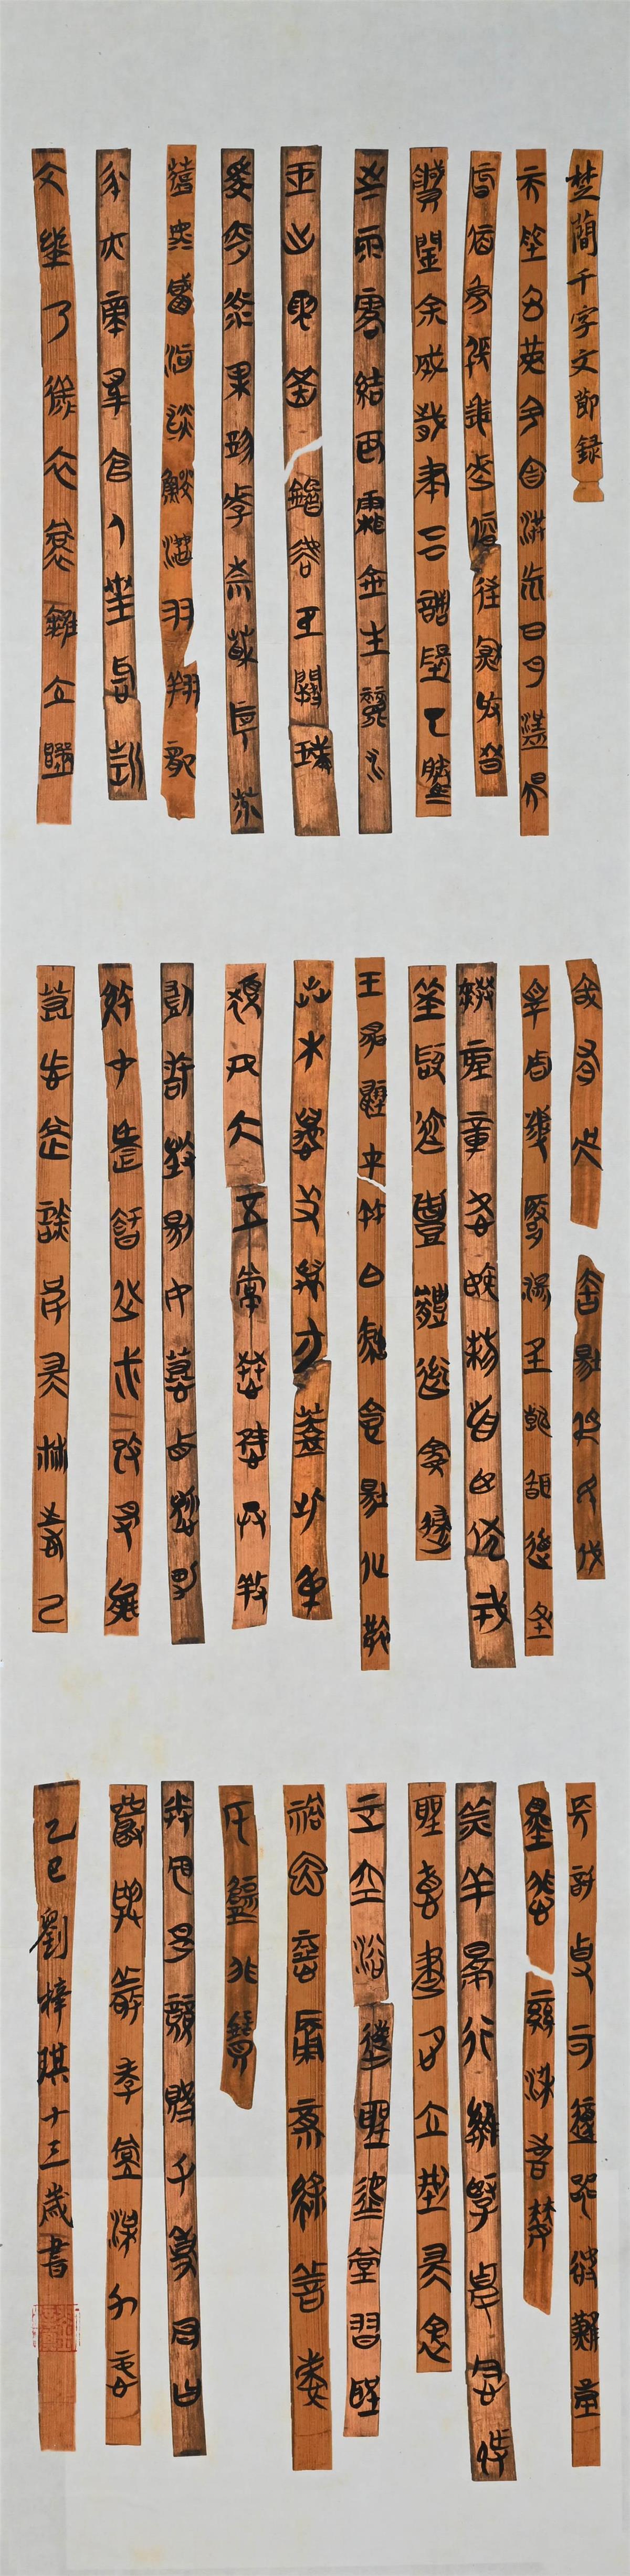 楚簡千字文節錄
天地玄黃宇宙洪荒日月盈昃
辰宿列張寒來暑往秋收冬
藏閏余成歲律呂調陽云騰
致雨露結為霜金生麗水
玉出昆岡劍號巨闕珠
稱夜光果珍李柰菜重芥
薑海鹹河淡鱗潛羽翔龍
師火帝鳥官人皇始制
文字乃服衣裳推位讓
國有虞陶唐弔民伐
罪周發殷湯坐朝問道垂
拱平章愛育黎首臣伏戎
羌遐邇壹體率賓歸
王鳴鳳在竹白駒食場化被
草木賴及萬方蓋此身
髮四大五常恭惟鞠養
豈敢毀傷女慕貞潔男
效才良知過必改得能
莫忘罔談彼短靡恃己
長信使可覆器欲難量
墨悲絲染詩讚
羔羊景行維賢克念作
聖德建名立形端表
正空谷傳聲虛堂習聽
禍因惡積福緣善慶
尺璧非寶
寸陰是競資父事君曰
嚴與敬孝當竭力忠
乙巳劉梓騏十三歲書